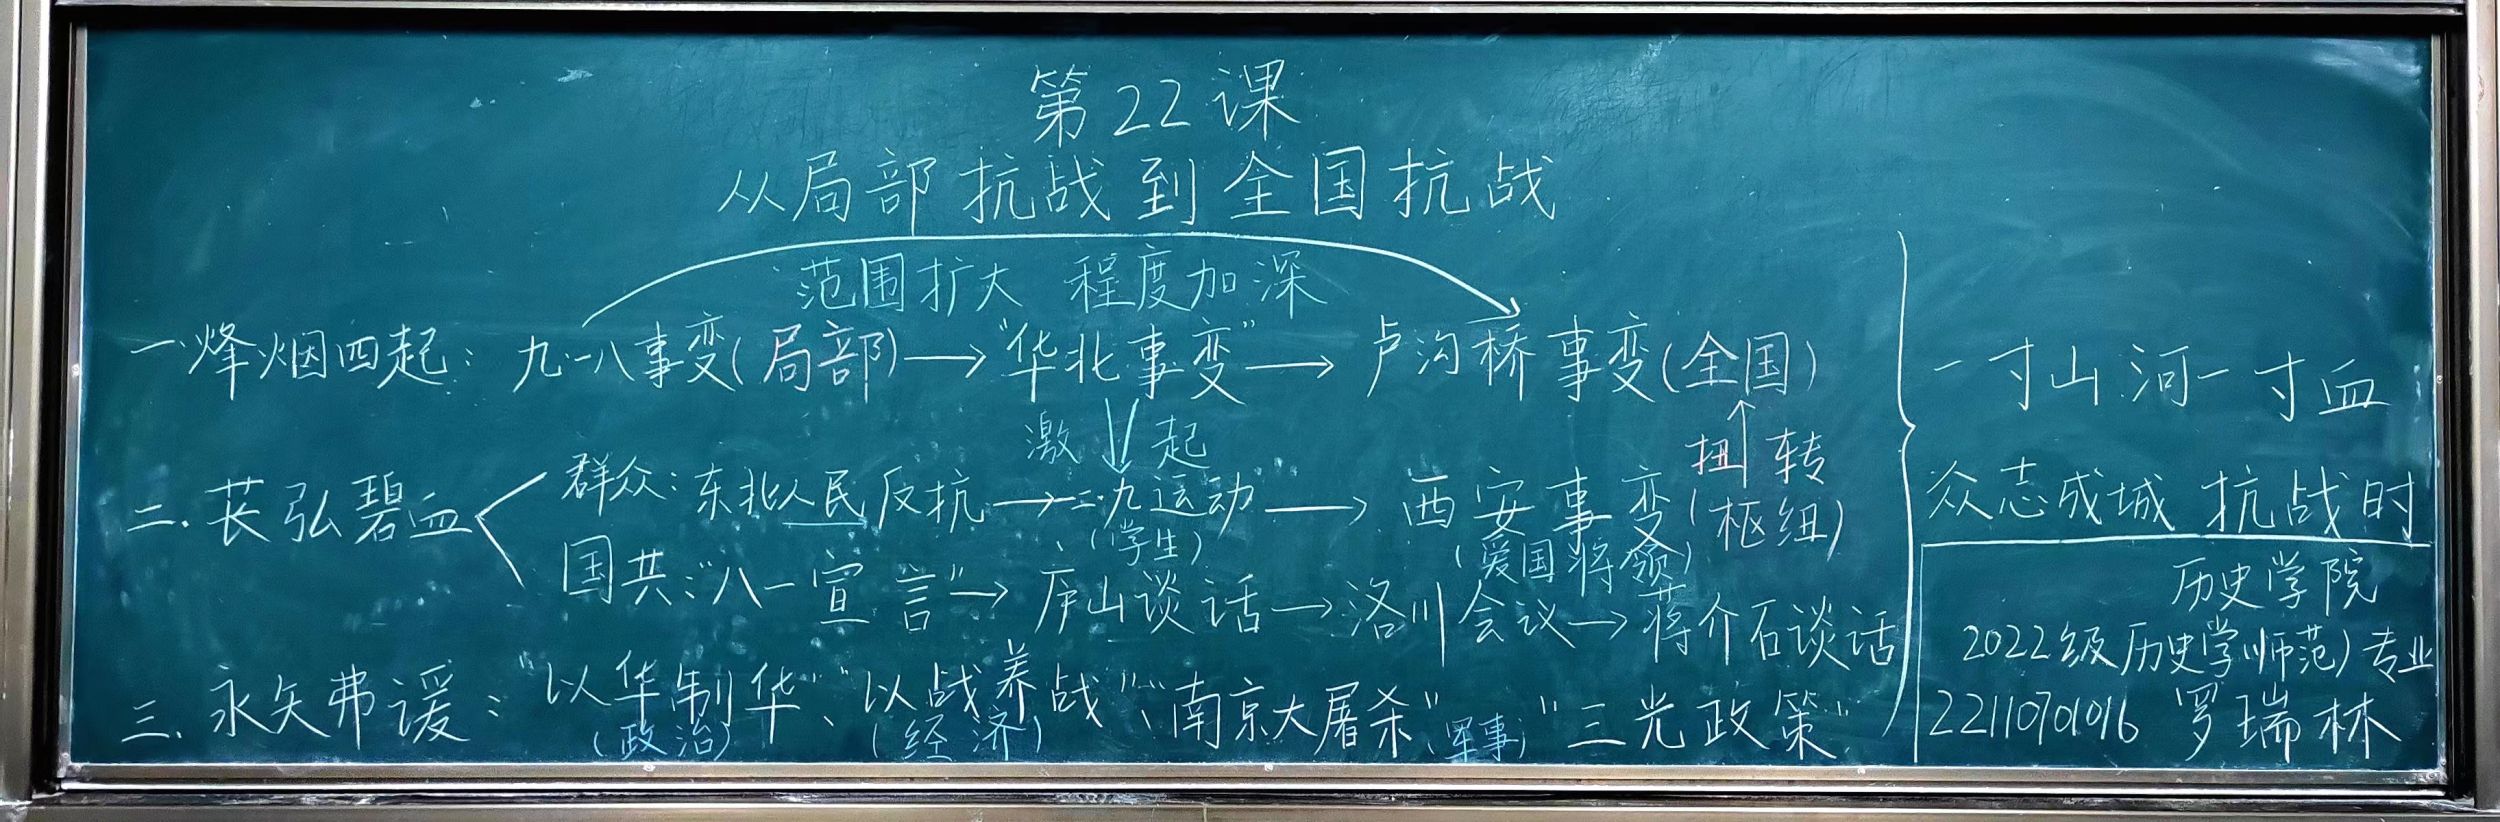 第22课
从局部抗战到全国抗战
范围扩大 程度加深
一.烽烟四起：九·一八事变(局部)→“华北事变”→卢沟桥事变(全国)
激起
扭转
(枢纽)
二.苌弘碧血
群众：东北人民反抗→一二·九运动→西安事变
(学生)
(爱国将领)
国共：“八一宣言”→庐山谈话→洛川会议→蒋介石谈话
三.永矢弗谖：“以华制华”、“以战养战”、“南京大屠杀”“三光政策”
(政治)
(经济)
(军事)
一寸山河一寸血
众志成城抗战时
历史学院
2022级历史学(师范)专业
22110701016 罗瑞林